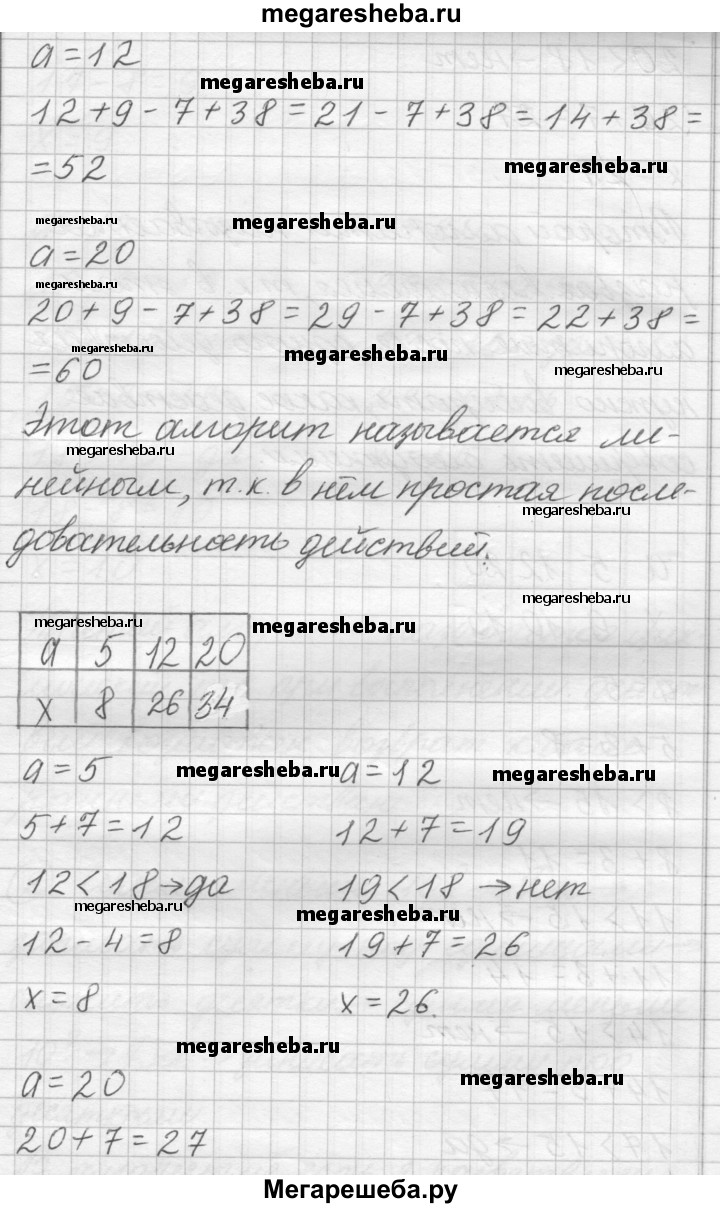 megaresheba.ru
a = 12
megaresheba.ru
12 + 9 - 7 + 38 = 21 - 7 + 38 = 14 + 38 =
= 52
megaresheba.ru
megaresheba.ru
megaresheba.ru
a = 20
megaresheba.ru
20 + 9 - 7 + 38 = 29 - 7 + 38 = 22 + 38 =
megaresheba.ru
megaresheba.ru
megaresheba.ru
= 60
Этот алгорит называется ли-
megaresheba.ru
нейным, т.к. в нём простая после-
megaresheba.ru
довательность действий.
megaresheba.ru
megaresheba.ru
megaresheba.ru
a 5 12 20
x 8 26 34
a = 5
megaresheba.ru
a = 12
megaresheba.ru
5 + 7 = 12
12 + 7 = 19
12 < 18 → да
19 < 18 → нет
megaresheba.ru
megaresheba.ru
12 - 4 = 8
19 + 7 = 26
x = 8
x = 26.
megaresheba.ru
a = 20
megaresheba.ru
20 + 7 = 27
Мегарешеба.ру